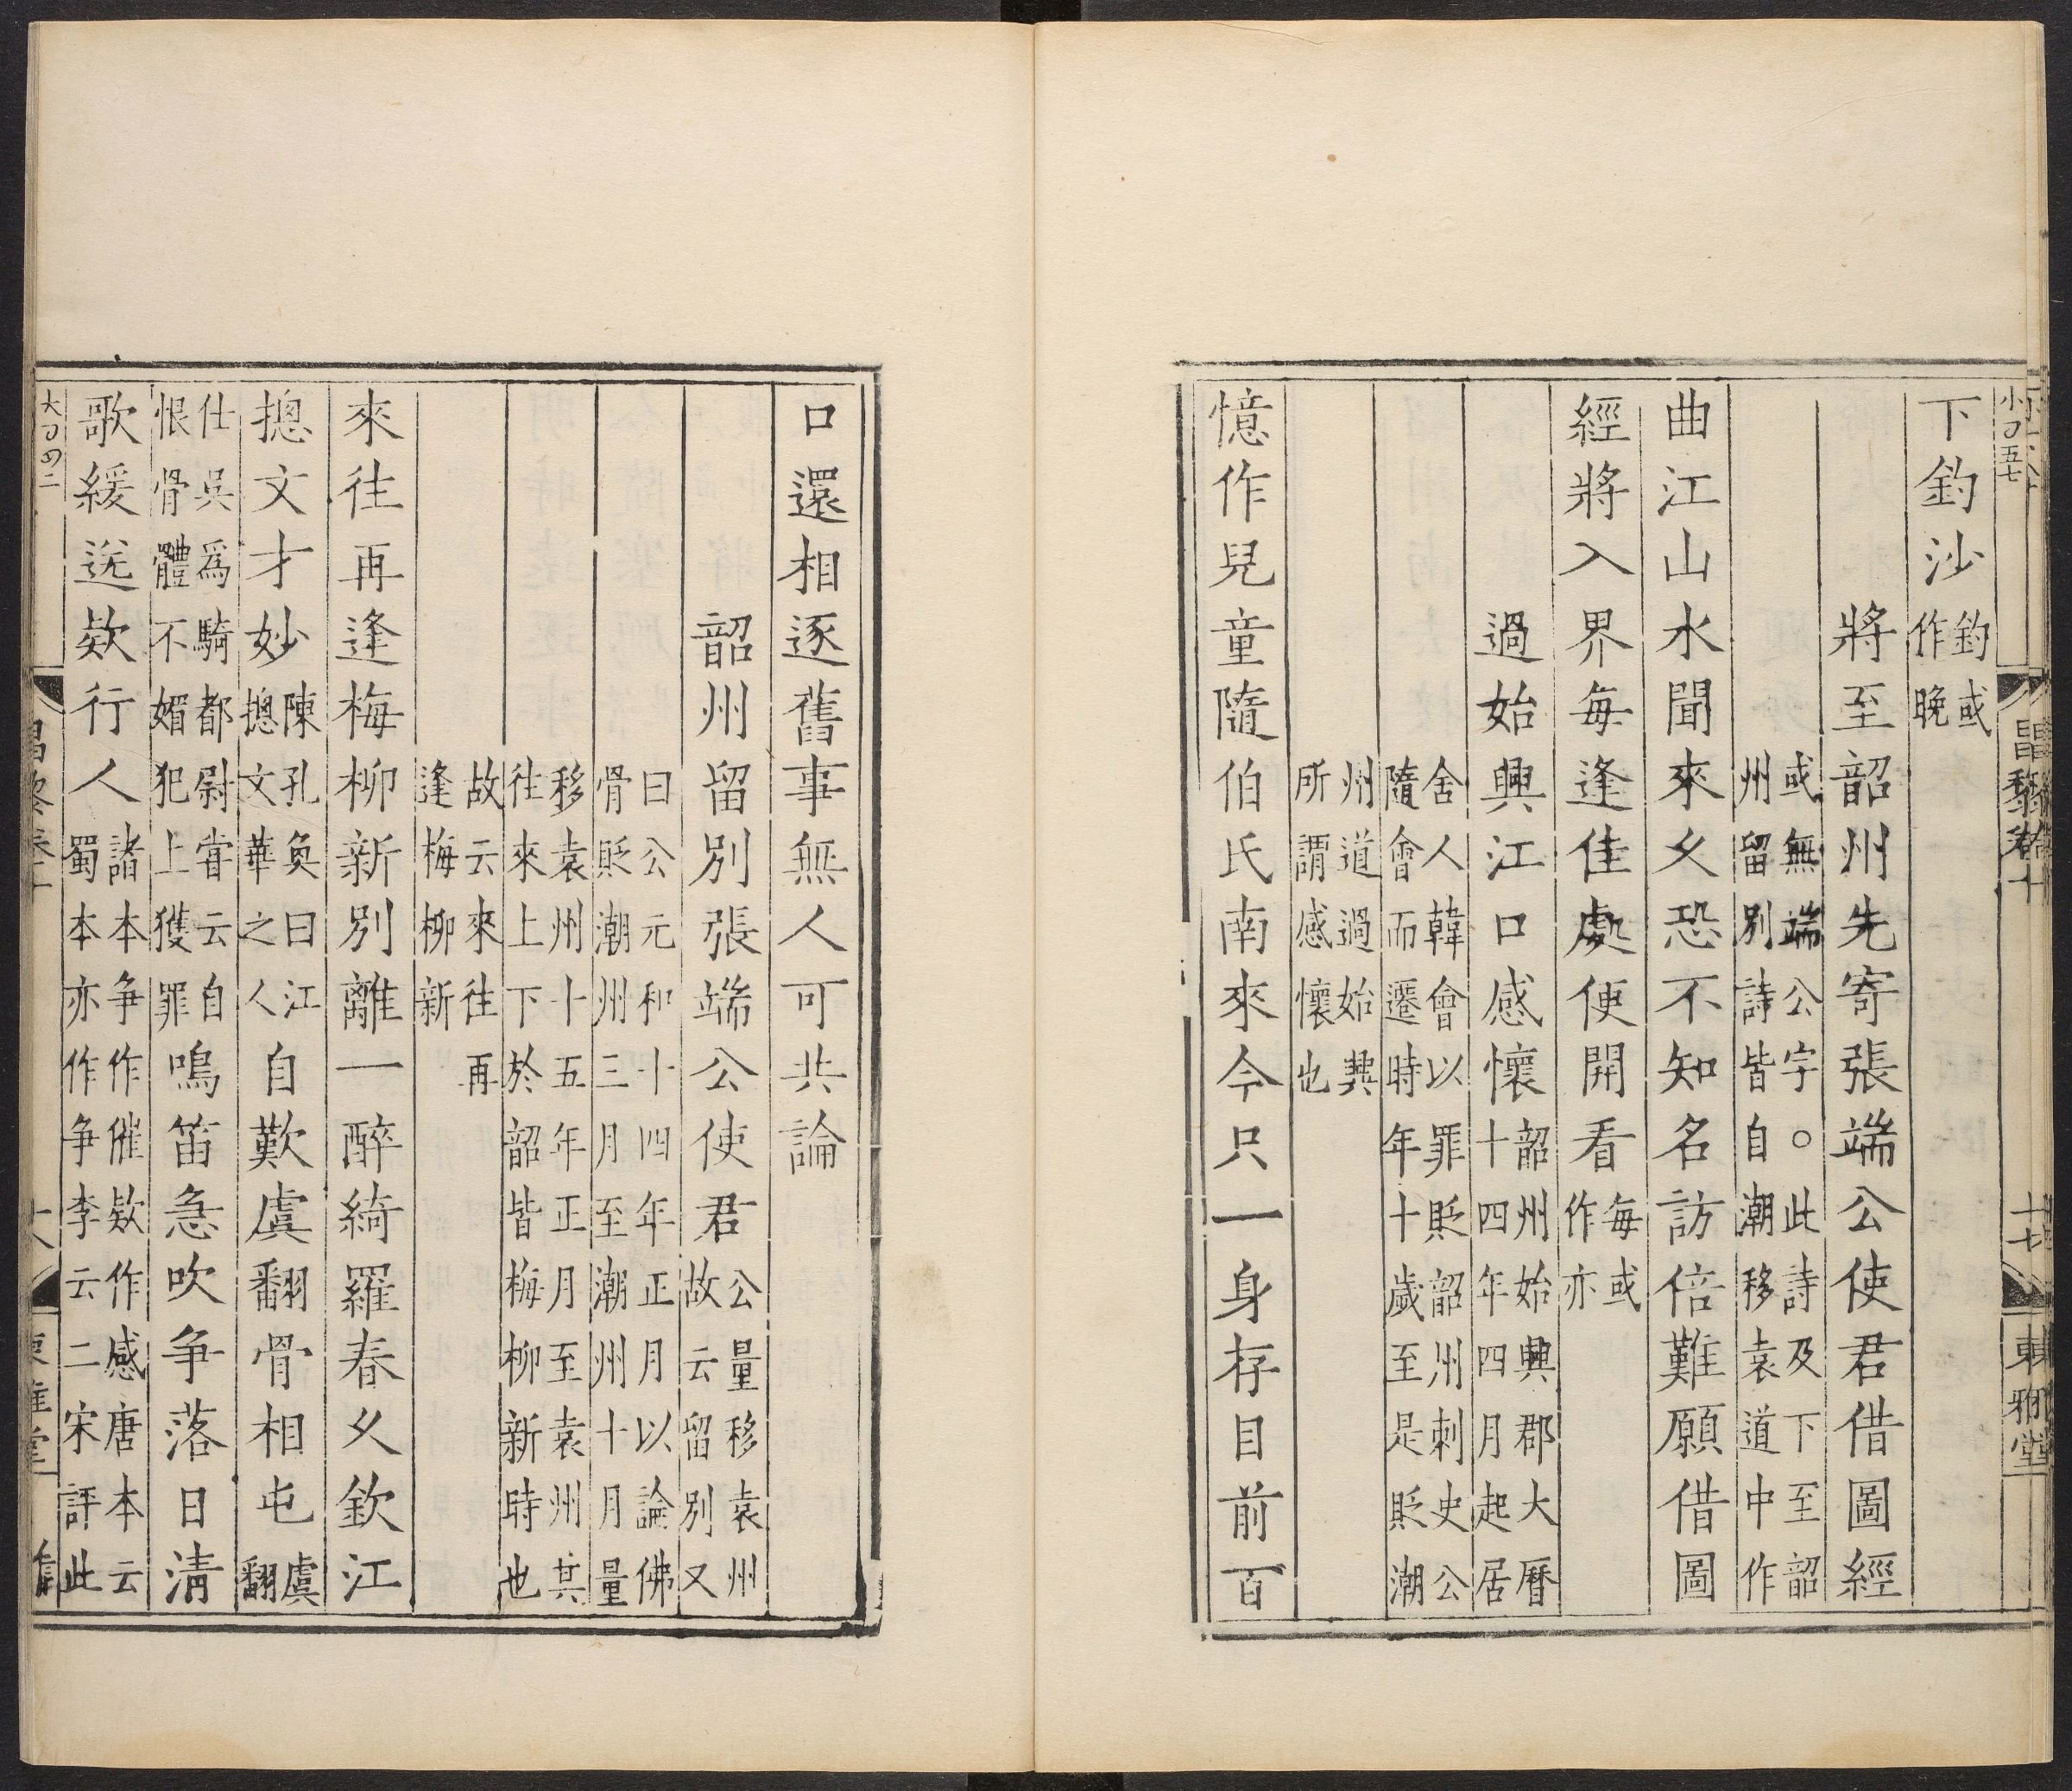 小𠃌五七
昌黎卷十
十七
東雅堂
下釣沙釣或作晚
將至韶州先寄張端公使君借圖經
或無端公字。此詩及下至韶
州留別詩皆自潮移袁道中作
曲江山水聞來久恐不知名訪倍難願借圖
經將入界每逢佳處便開看每或作亦
過始興江口感懷韶州始興郡大曆十四年四月起居
舍人韓會以罪貶韶州刺史公
隨會而遷時年十歲至是貶潮
州道過始興
所謂感懷也
憶作兒童隨伯氏南來今只一身存目前百
口還相逐舊事無人可共論
韶州留別張端公使君公量移袁州故云留別又
曰公元和十四年正月以論佛
骨貶潮州三月至潮州十月量
移袁州十五年正月至袁州其
往來上下於韶皆梅柳新時也
故云來往再
逢梅柳新
來往再逢梅柳新別離一醉綺羅春久欽江
摠文才妙陳孔奐曰江摠文華之人自歎虞翻骨相屯虞翻
仕吳爲騎都尉嘗云自恨骨體不媚犯上獲罪鳴笛急吹争落日清
歌緩送欵行人諸本争作催欵作感唐本云蜀本亦作争李云二宋評此
昌黎卷十
十八
東雅堂